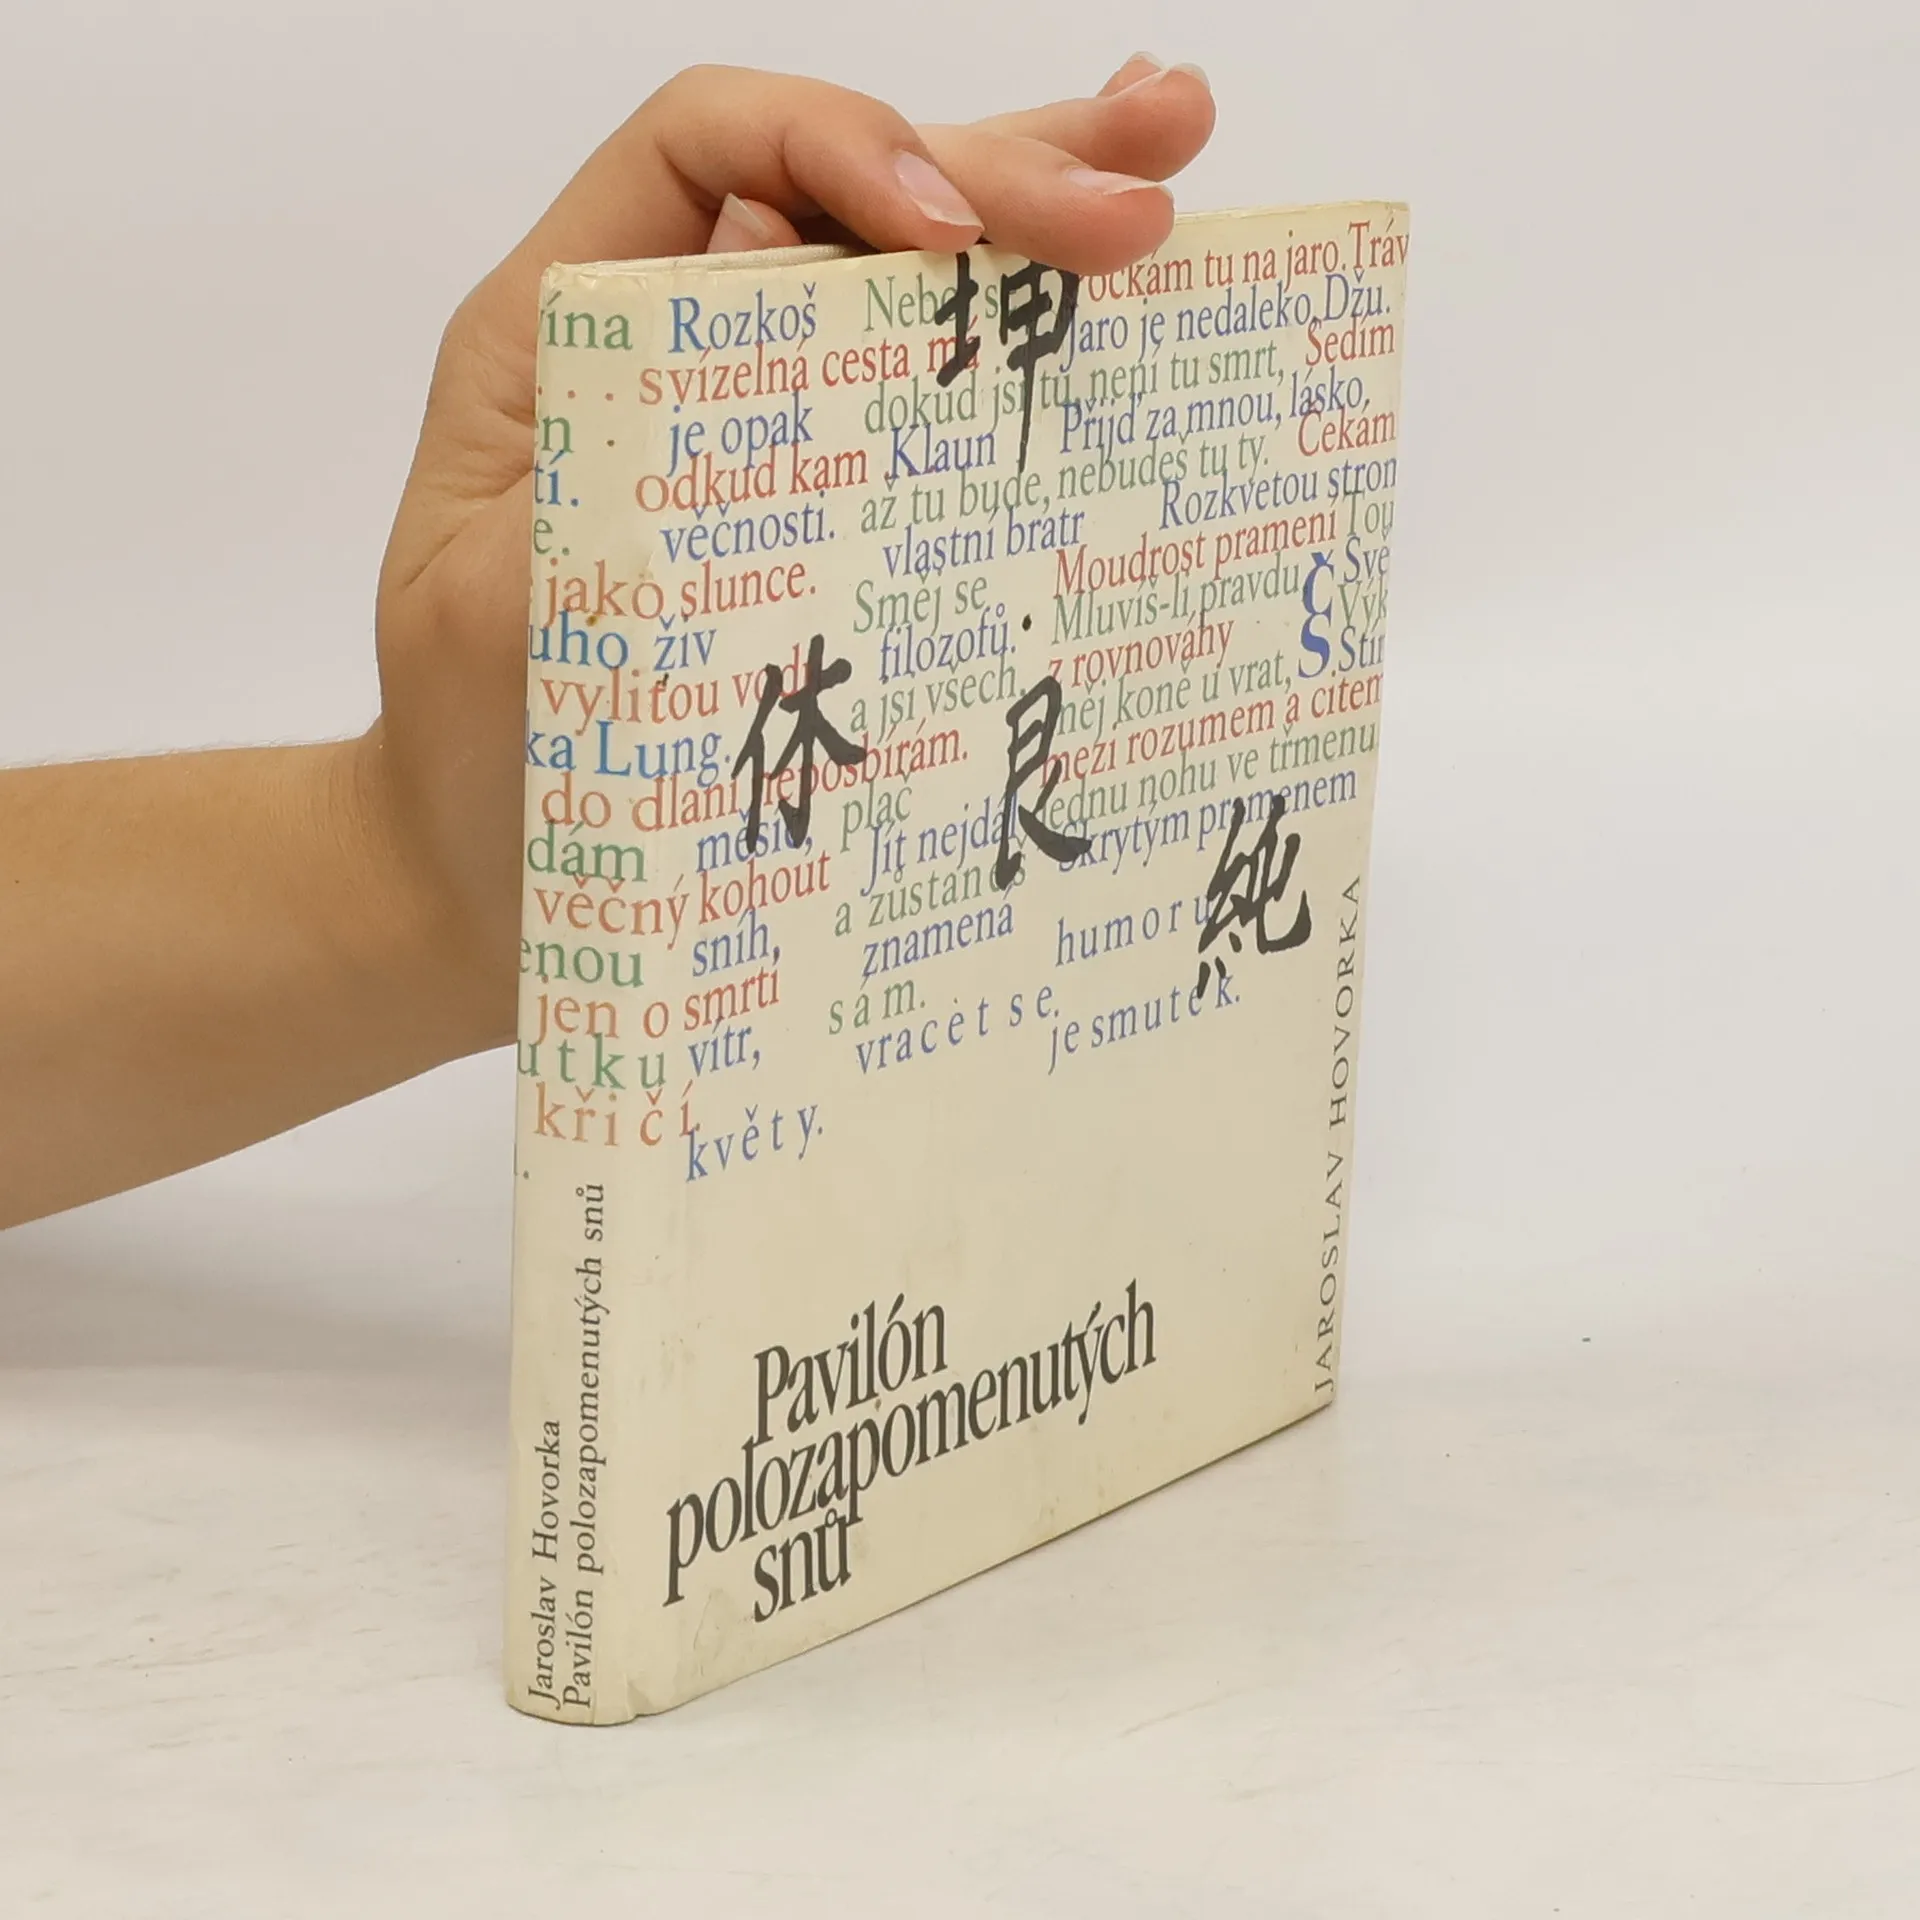 坤
休
艮
純
ína Rozkoš
Nebo
ročkám tu na jaro. Tráv
svízelná cesta má
Jaro je nedaleko, Džu.
je opak
dokud jsi tu, není tu smrt,
Sedím
odkud kam
Klaun
Přijď za mnou, lásko,
tí.
věčnosti.
až tu bude, nebudeš tu ty.
Čekám
e.
vlastní bratr
Rozkvetou stron
jako slunce.
Směj se
Moudrost pramení
Tou
uho živ
filozofů.
Mluvíš-li pravdu,
Č
Svě
vylitou vodu
a jsi všech.
z rovnováhy
S
Výk
ka Lung.
něj koně u vrat,
Stín
do dlaní neposbírám.
mezi rozumem a citem
dám
měsíc,
pláč
jednu nohu ve třmenu.
věčný kohout
Jít nejdál
Skrytým pramenem
enou
sníh,
a zůstaneš
humoru
jen o smrti
znamená
utku
vítr,
sám.
je smutek.
křičí.
vracet se.
květy.
Pavilón
polozapomenutých
snů
JAROSLAV HOVORKA
Jaroslav Hovorka
Pavilón polozapomenutých snů